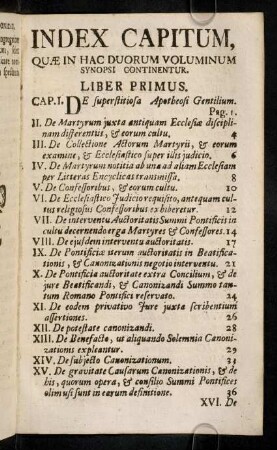 INDEX CAPITUM,
QUÆ IN HAC DUORUM VOLUMINUM
SYNOPSI CONTINENTUR.
LIBER PRIMUS.
CAP. I. DE superstitiosa Apotheosi Gentilium.
Pag. 1.
II. De Martyrum juxta antiquam Ecclesiæ discipli-
nam differentiis, & eorum cultu. 4
III. De Collectione Actorum Martyrii, & eorum
examine, & Ecclesiastico super illis judicio. 6
IV. De Martyrum notitia ab una ad aliam Ecclesiam
per Litteras Encyclicas transmissa. 8
V. De Confessoribus, & eorum cultu. 10
VI. De Ecclesiastico Judicio requisito, antequam cul-
tus religiosus Confessoribus exhiberetur. 12
VII. De interventu Auctoritatis Summi Pontificis in
cultu decernendo erga Martyres & Confessores. 14
VIII. De ejusdem interventu auctoritatis. 17
IX. De Pontificiæ iterum auctoritatis in Beatifica-
tionis, & Canonizationis negotio interventu. 21
X. De Pontificia auctoritate extra Concilium, & de
jure Beatificandi, & Canonizandi Summo tan-
tum Romano Pontifici reservato. 24
XI. De eodem privativo Jure juxta scribentium
assertiones. 26
XII. De potestate canonizandi. 28
XIII. De Benefacto, ut aliquando Solemnia Canoni-
zationis expleantur. 29
XIV. De subjecto Canonizationum. 33
XV. De gravitate Causarum Canonizationis, & de
his, quorum opera, & consilio Summi Pontifices
olim usi sunt in earum definitione. 36
XVI. De